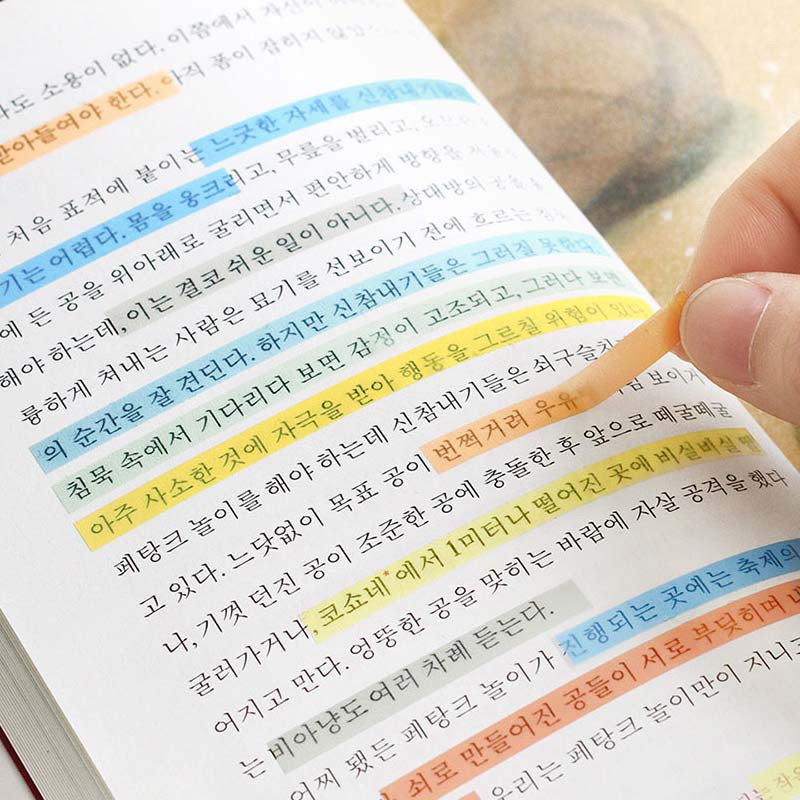 소용이 없다. 이쯤에서 자신이
받아들여야 한다. 아직 폼이 잡히지 않았
처음 표적에 붙이는 느긋한 자세를 신참내기들
기는 어렵다. 몸을 웅크리고, 무릎을 벌리고,
에 든 공을 위아래로 굴리면서 편안하게 방향을
해야 하는데, 이는 결코 쉬운 일이 아니다. 상대방의 공을
륭하게 쳐내는 사람은 묘기를 선보이기 전에 흐르는
의 순간을 잘 견딘다. 하지만 신참내기들은 그러질 못한다.
침묵 속에서 기다리다 보면 감정이 고조되고, 그러다 보면
아주 사소한 것에 자극을 받아 행동을 그르칠 위험이 있다.
페탕크 놀이를 해야 하는데 신참내기들은
고 있다. 느닷없이 목표 공이 번쩍거려 우유 보이거
나, 기껏 던진 공이 조준한 공에 충돌한 후 앞으로 떼굴떼굴
굴러가거나, 코쇼네*에서 1미터나 떨어진 곳에 비실비실 떨
어지고 만다. 엉뚱한 공을 맞히는 바람에 자살 공격을 했다
는 비아냥도 여러 차례 듣는다.
어찌 됐든 페탕크 놀이가 진행되는 곳에는 축제의
쇠로 만들어진 공들이 서로 부딪히며 내
우리는 페탕크 놀이만이 지니고